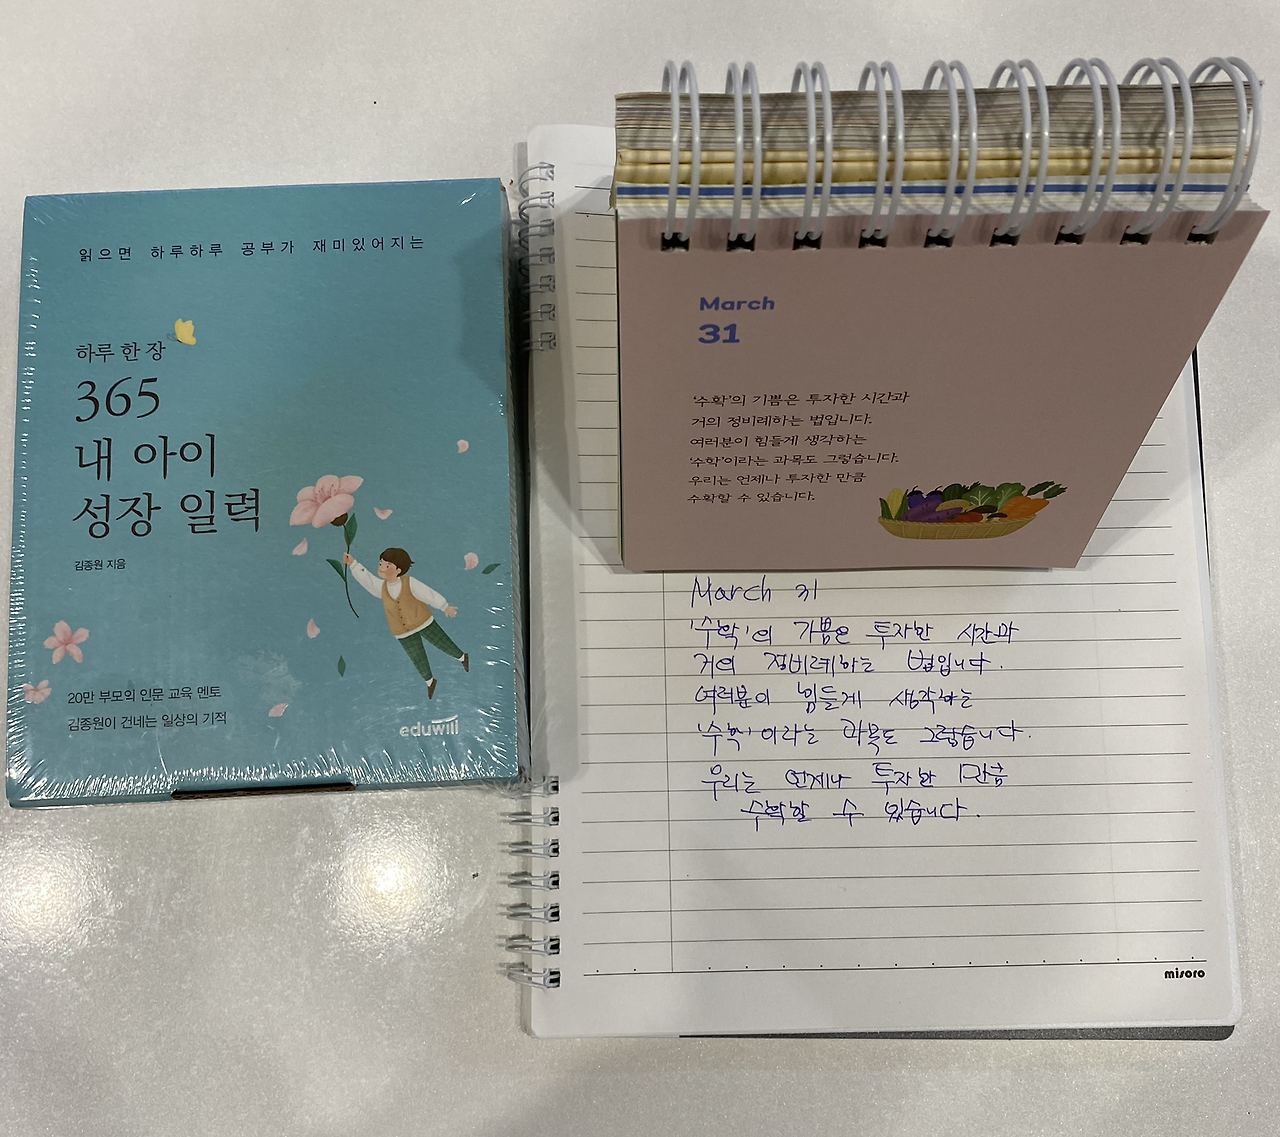 읽으면 하루하루 공부가 재미있어지는
하루 한 장
365
내 아이
성장 일력
김종원 지음
20만 부모의 인문 교육 멘토
김종원이 건네는 일상의 기적
eduwill
March
31
'수학'의 기쁨은 투자한 시간과
거의 정비례하는 법입니다.
여러분이 힘들게 생각하는
'수학'이라는 과목도 그렇습니다.
우리는 언제나 투자한 만큼
수확할 수 있습니다.
March 31
'수학'의 기쁨은 투자한 시간과
거의 정비례하는 법입니다.
여러분이 힘들게 생각하는
'수학'이라는 과목도 그렇습니다.
우리는 언제나 투자한 만큼
수확할 수 있습니다.
misoro